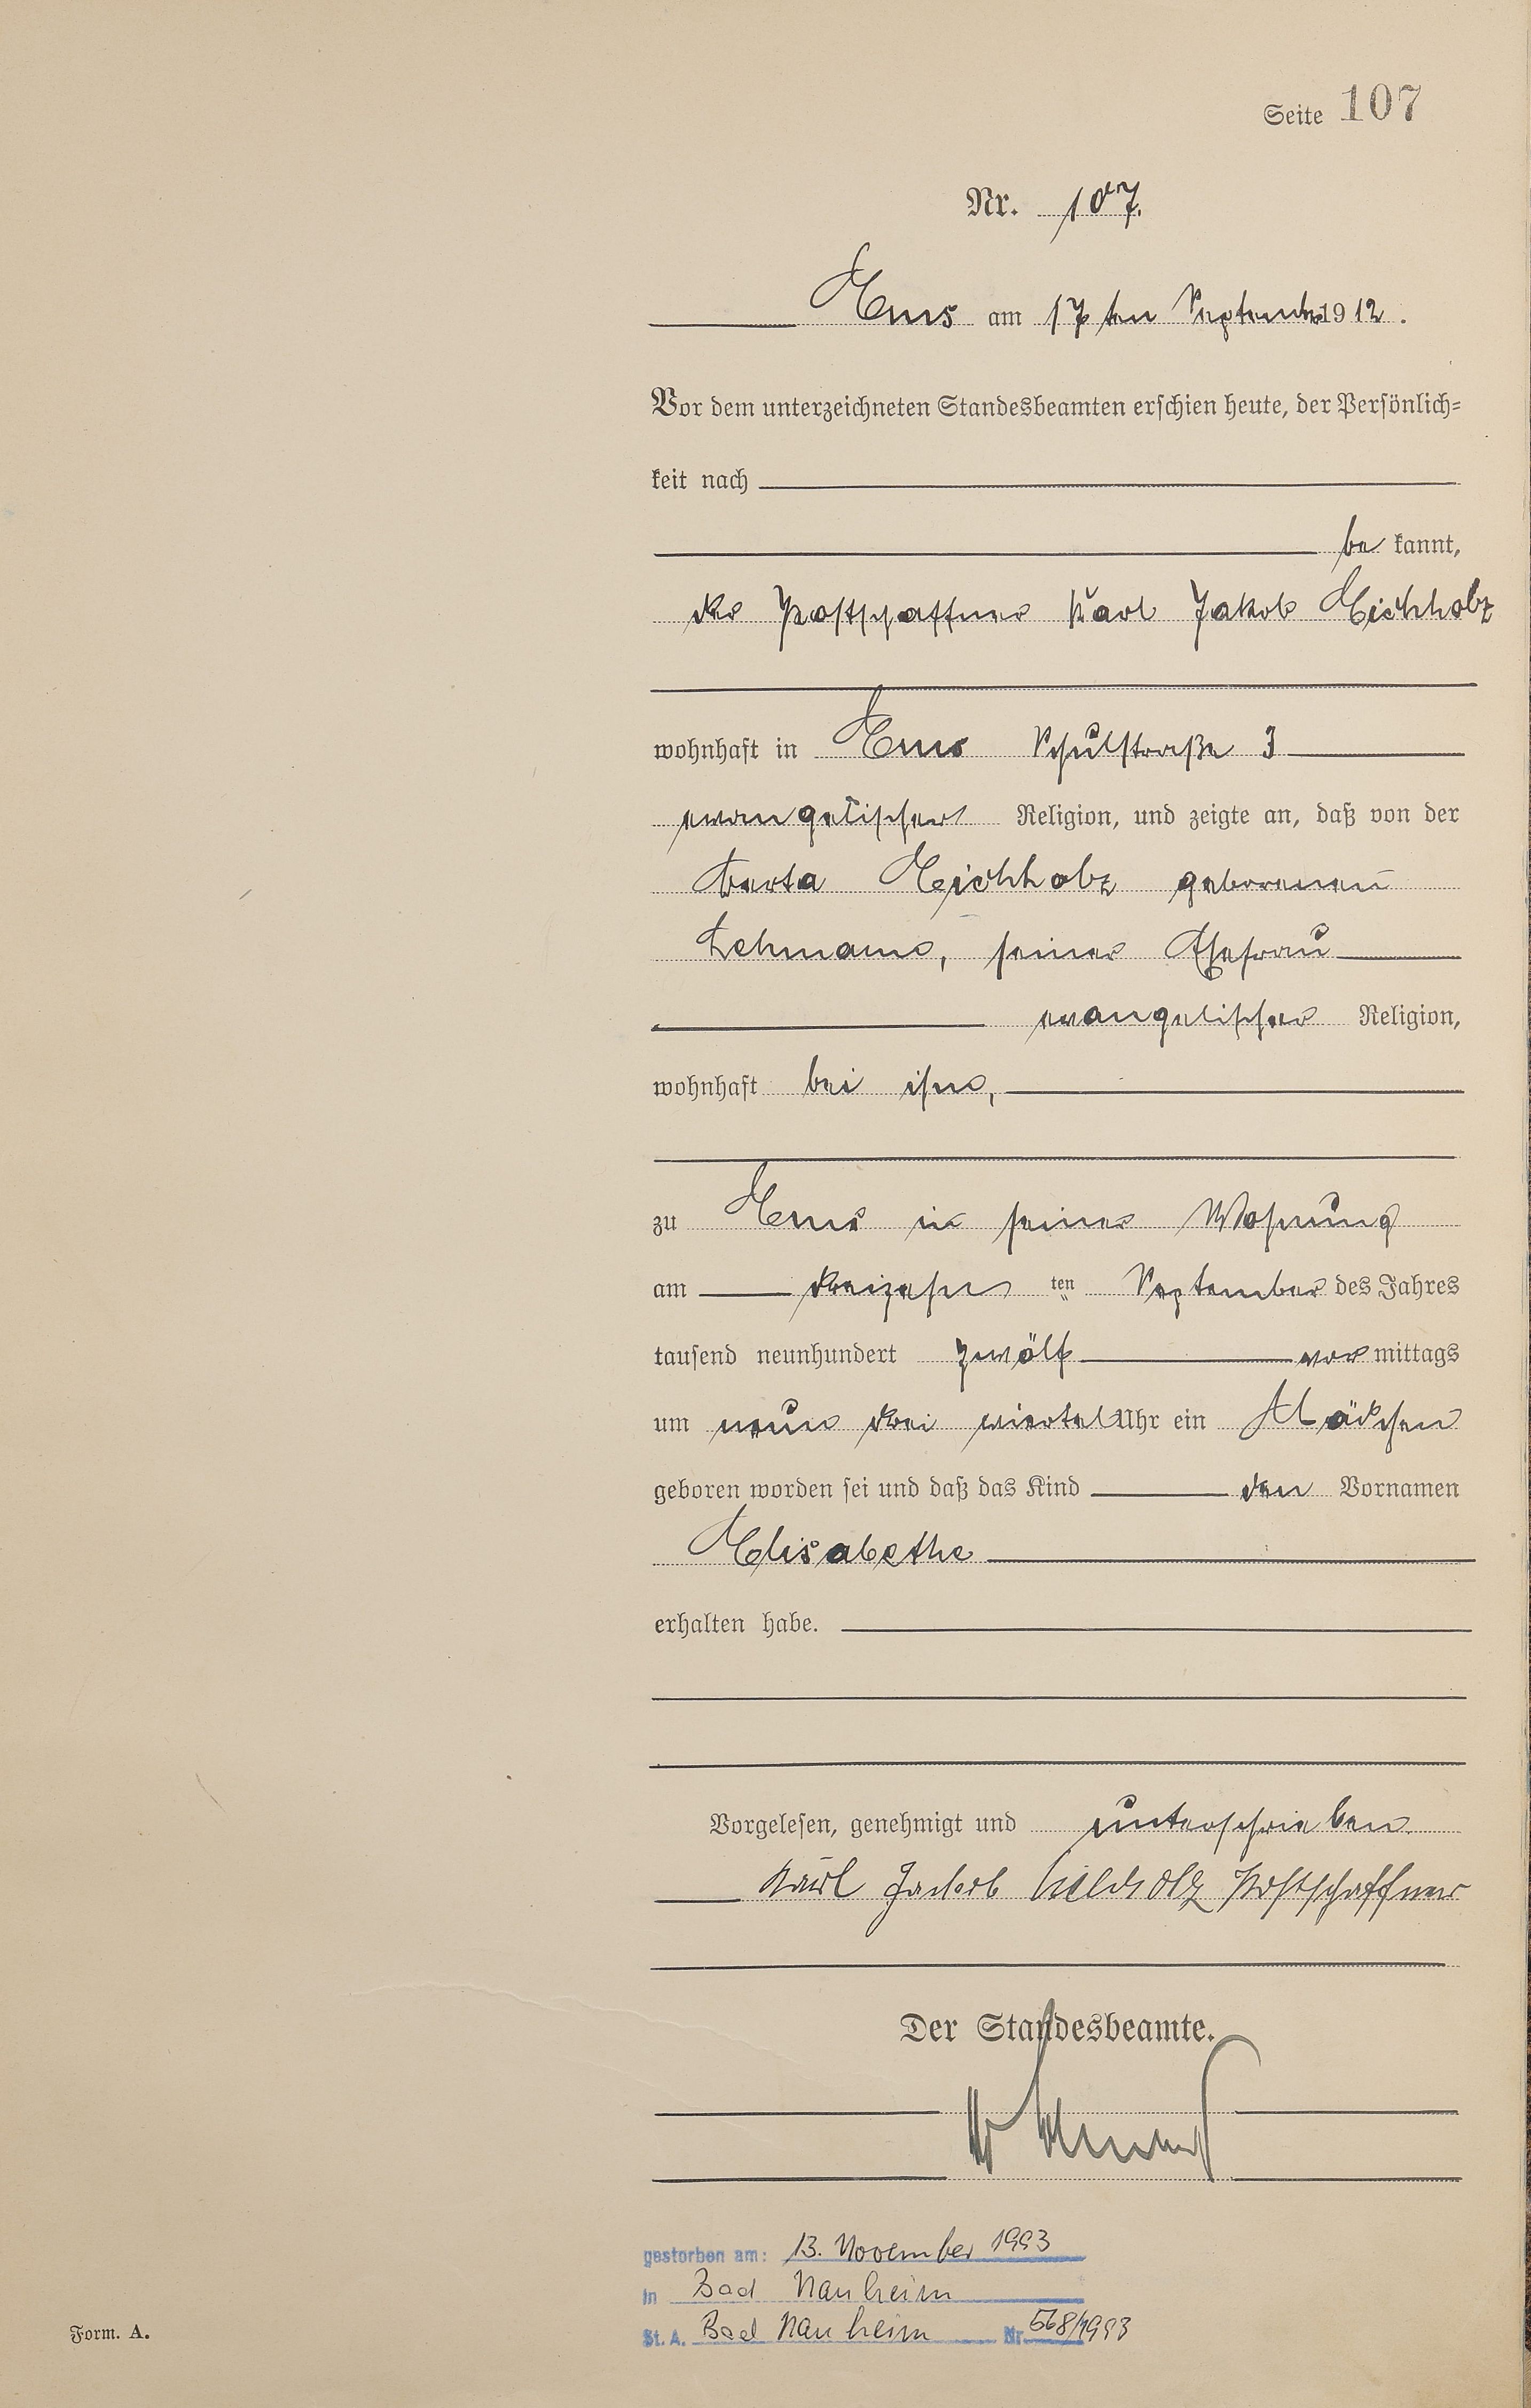 Seite 107
Nr. 107.
Ems am 17 ten September 1912.
Vor dem unterzeichneten Standesbeamten erschien heute, der Persönlich-
keit nach
be kannt,
der Postschaffner Karl Jakob Eichholz
wohnhaft in Ems Schulstraße 3
evangelischer Religion, und zeigte an, daß von der
Berta Eichholz geborenen
Lehmann, seiner Ehefrau
evangelischer Religion,
wohnhaft bei ihm,
zu Ems in seiner Wohnung
am dreizehn ten September des Jahres
tausend neunhundert zwölf vor mittags
um neun drei viertel Uhr ein Mädchen
geboren worden sei und daß das Kind den Vornamen
Elisabethe
erhalten habe.
Vorgelesen, genehmigt und unterschrieben
Karl Jakob Eichholz Postschaffner
Der Standesbeamte.
gestorben am: 13. November 1993
in Bad Nauheim
St. A. Bad Nauheim Nr. 568/1993
Form. A.